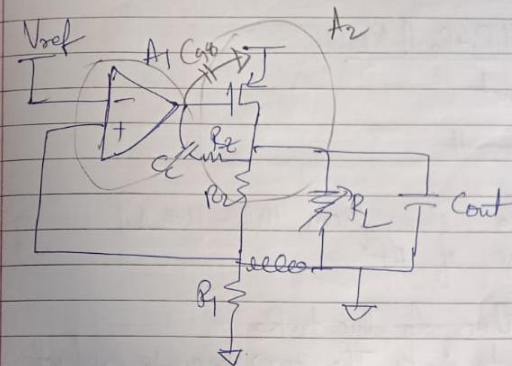 Vref
A1
Cgs
A2
-
+
Cc
Rz
R2
RL
Cout
R1